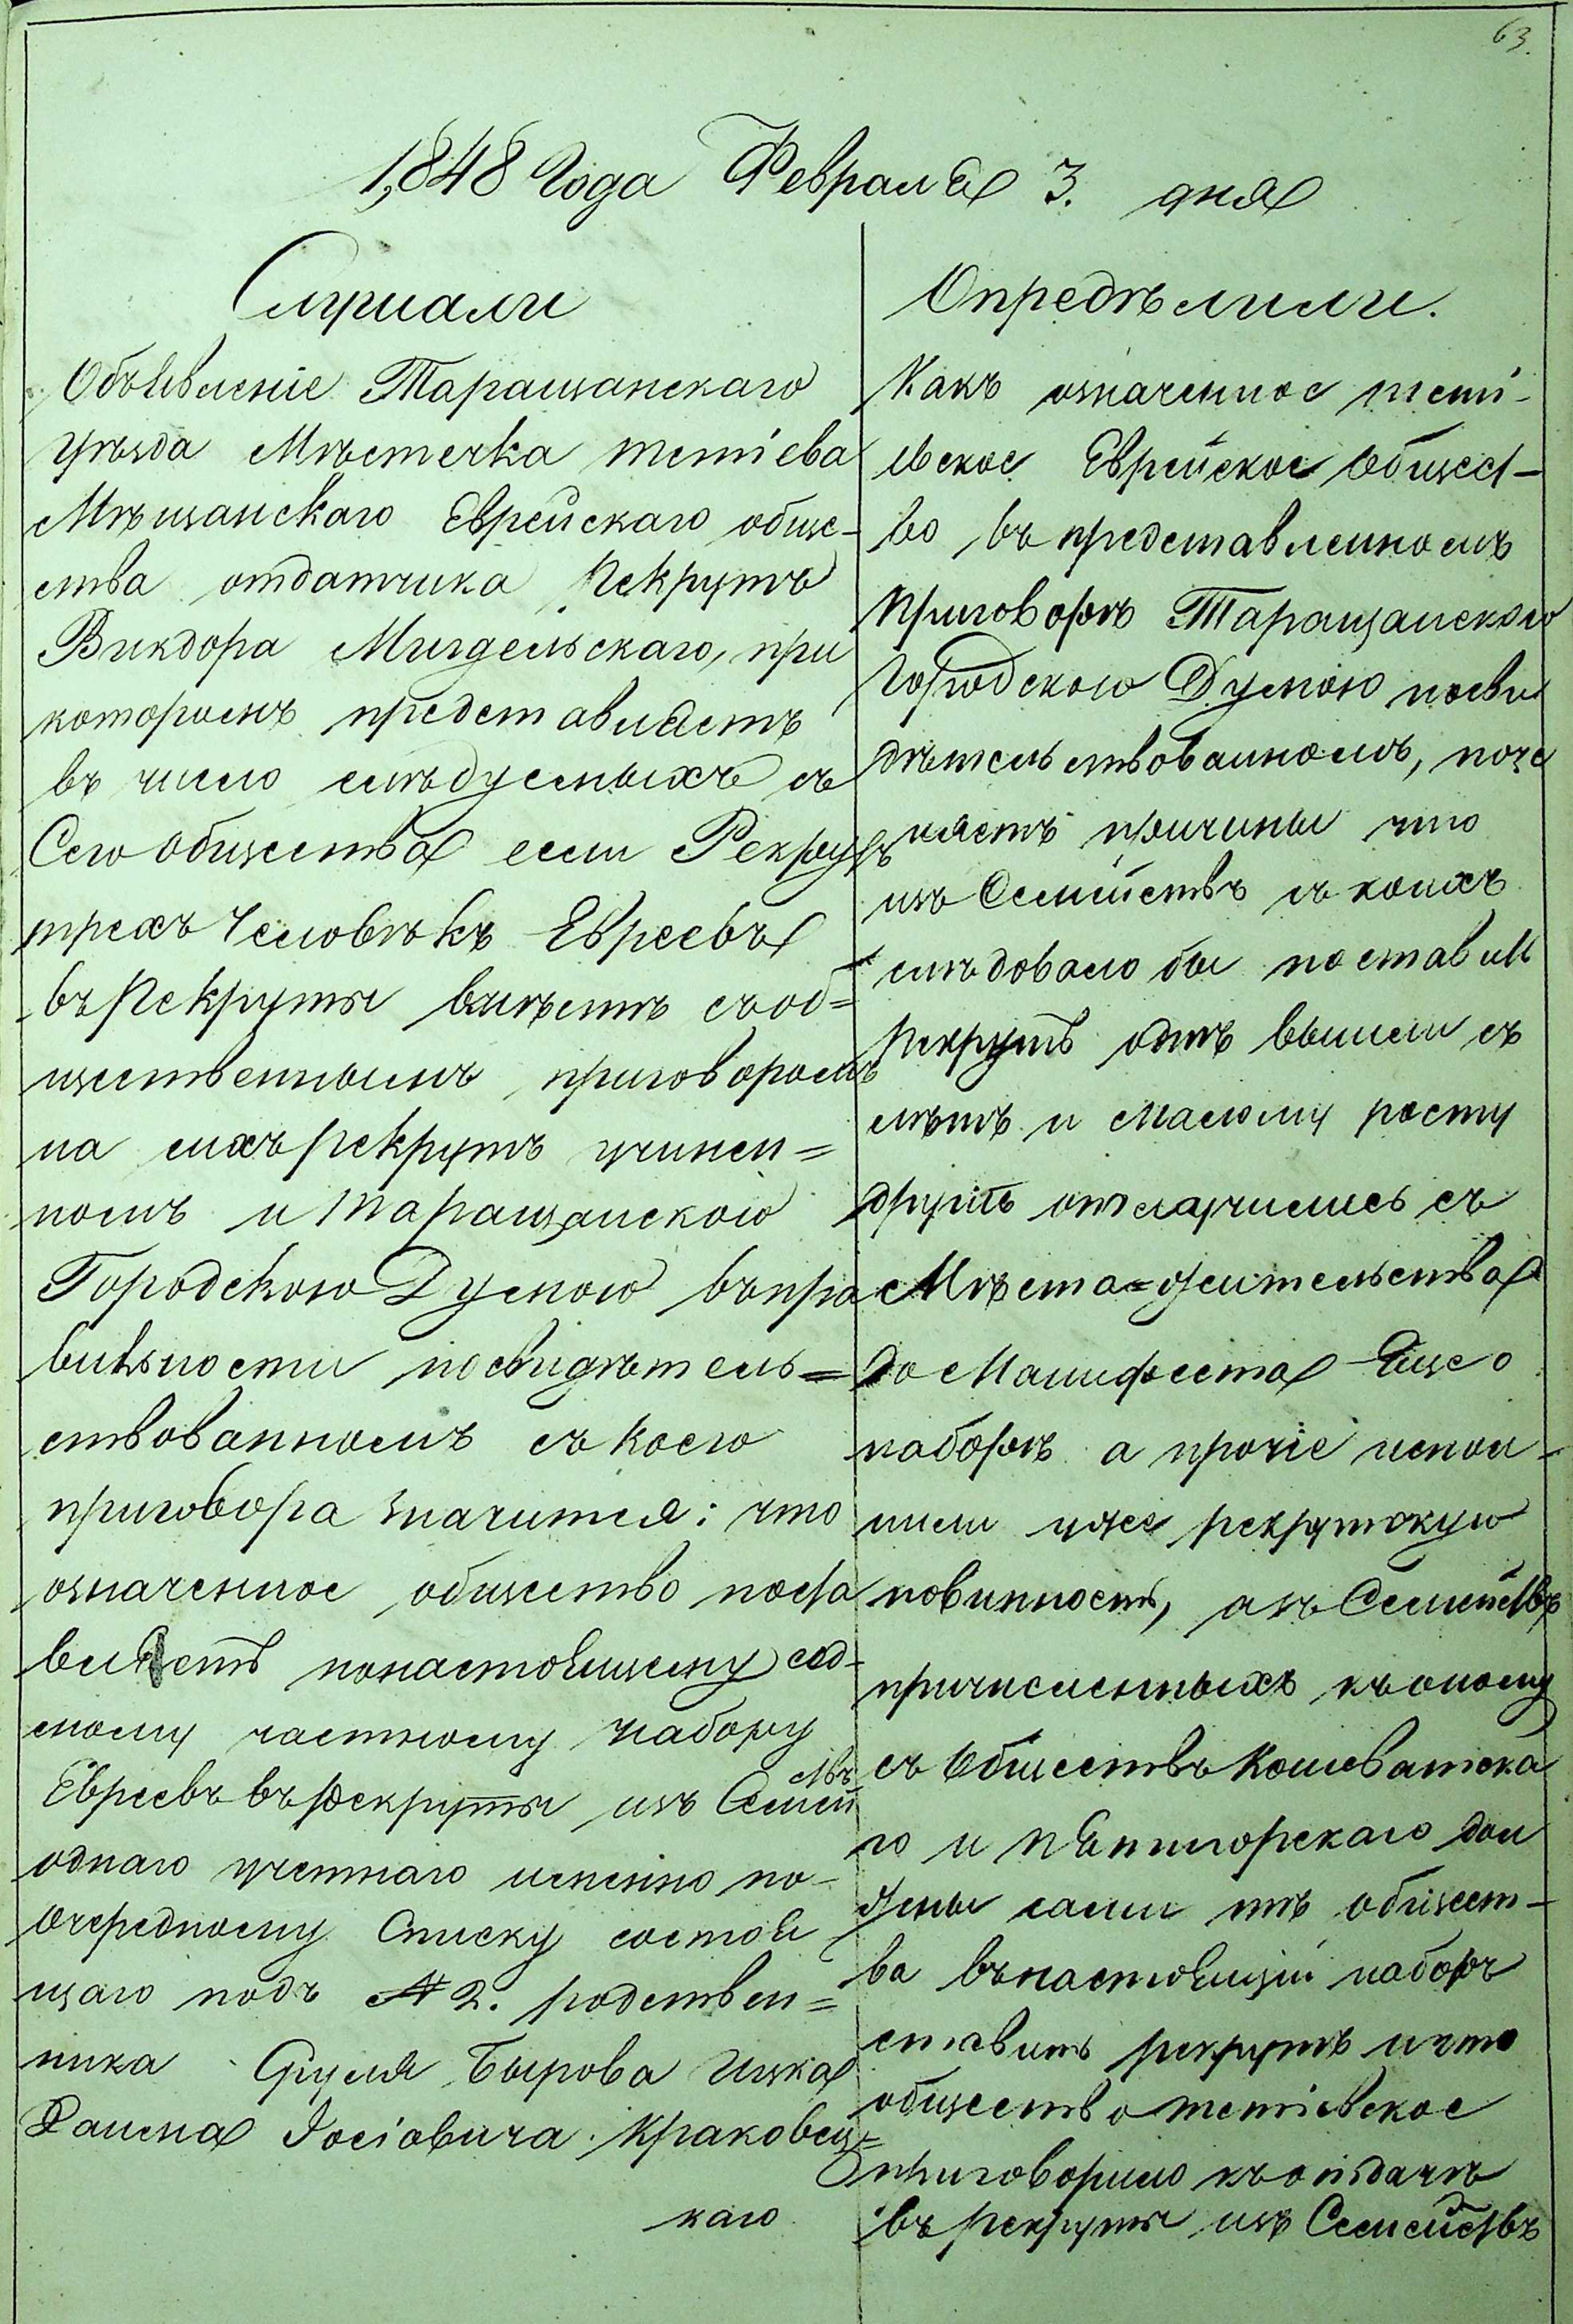 63.
1848 Года Февраля 3. дня
Слушали
Объявленіе Таращанскаго
уѣзда Мѣстечка тетіева
Мѣщанскаго Еврейскаго обще-
ства отдатчика Рекрутъ
Викдора Мигдельскаго, при
которомъ представляетъ
въ число слѣдуемыхъ съ
Сего общества семи Рекрутъ
трехъ Человѣкъ Евреевъ
въ Рекруты вмѣстѣ съ об=
щественнымъ приговоромъ
на сихъ рекрутъ учинен=
номъ и Таращанскою
Городскою Думою въ пра
вильности посвидѣтель=
ствованномъ съ коего
приговора значится: что
означенное общество поста
вляетъ понастоящему сод-
ному частному набору
Евреевъ въ рекруты изъ Семействъ
однаго учетнаго именно по-
очередному Списку состоя
щаго подъ № 2. родствен=
ника Сруля Бырова Ицка
Іосіовича Краковец=
каго
Опредѣлили.
Какъ означенное теті-
евское Еврейское Общест-
во въ представленномъ
приговорѣ Таращанскою
Городскою Думою посви
дѣтельствованномъ, пояс
няетъ причины что
изъ Семействъ съ коихъ
слѣдовало бы поставить
Рекрутъ однѣ вышли съ
лѣтъ и малому росту
другіе отлучились съ
Мѣста=жительства
до Манифеста Еще о
наборѣ а прочіе испол-
нили уже рекрутскую
повинность, а изъ Семействъ
причисленныхъ къ оному
съ Обществъ Кошеватска
го и пятигорскаго дол
жны сами тѣ общест-
ва въ настоящій наборъ
ставить рекрутъ и что
общество тетіевское
приговорило къ отдачѣ
въ рекруты изъ Семействъ